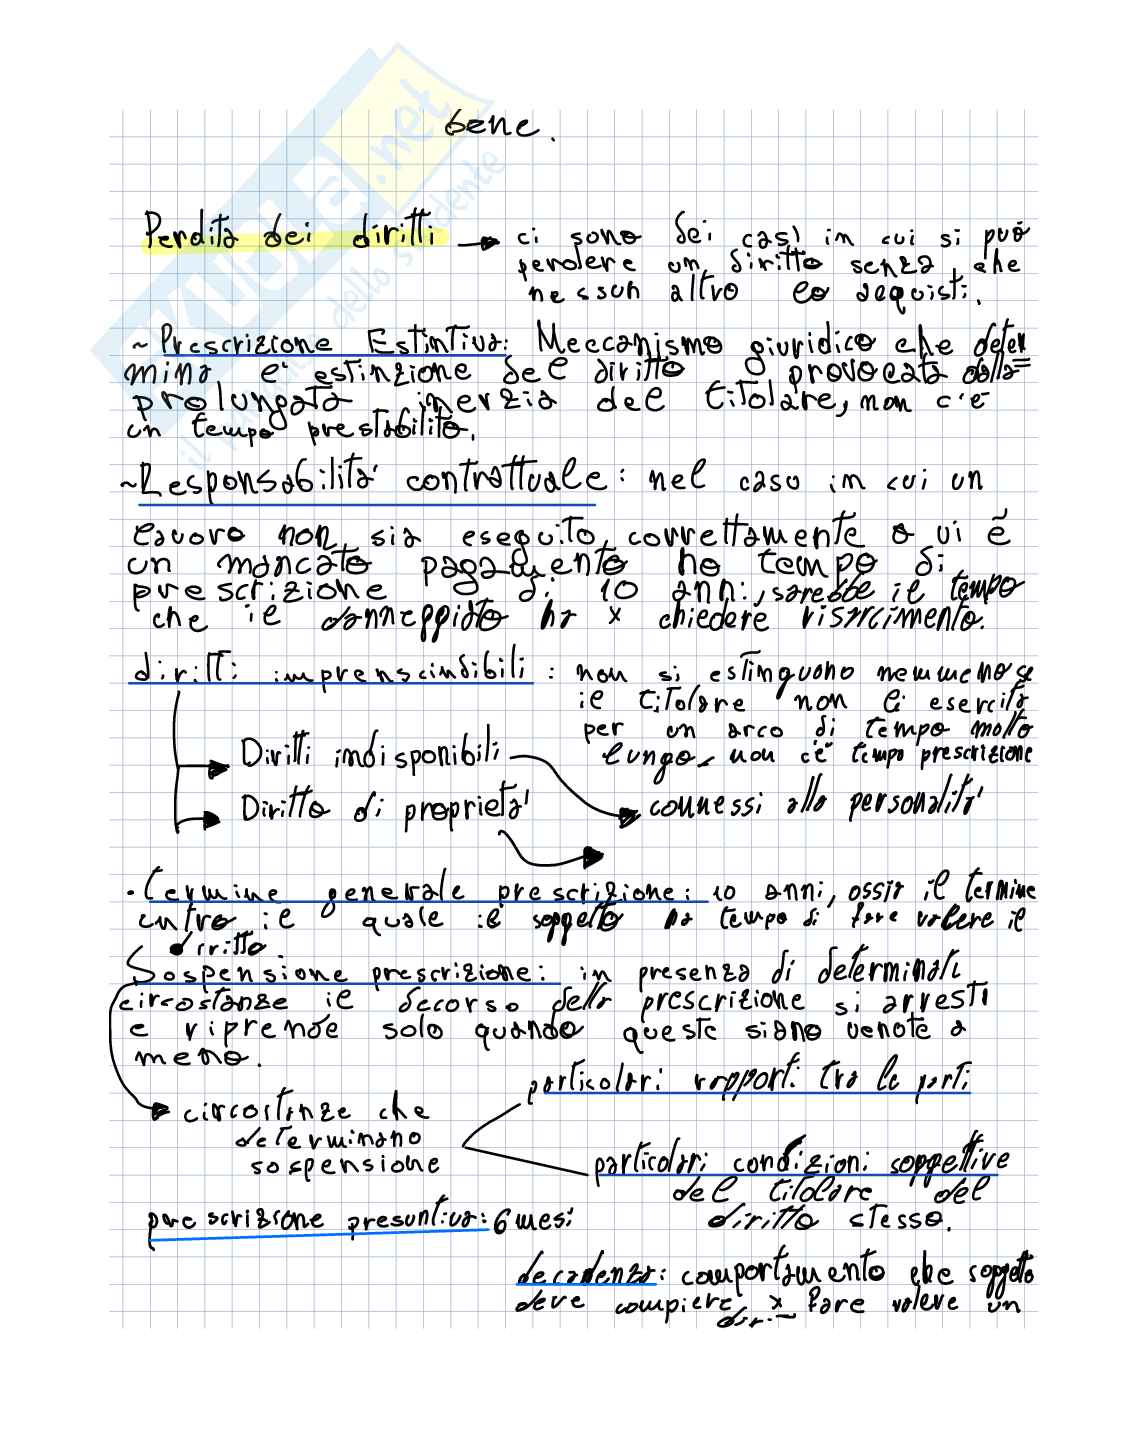 bene.
Perdita dei diritti → ci sono dei casi in cui si può
perdere un diritto senza che
nessun altro lo acquisti.
~ Prescrizione Estintiva: Meccanismo giuridico che deter
mina l'estinzione del diritto provocata dalla
prolungata inerzia del titolare, non c'è
un tempo prestabilito.
~ Responsabilità contrattuale: nel caso in cui un
lavoro non sia eseguito correttamente o vi è
un mancato pagamento ho tempo di
prescrizione di 10 anni, sarebbe il tempo
che il danneggiato ha x chiedere risarcimento.
diritti imprenscindibili: non si estinguono nemmeno se
il titolare non li esercita
per un arco di tempo molto
lungo, non c'è tempo prescrizione
Diritti indisponibili → connessi alla personalità
Diritto di proprietà →
· Termine generale prescrizione: 10 anni, ossia il termine
entro il quale il soggetto ha tempo di fare valere il
diritto.
Sospensione prescrizione: in presenza di determinate
circostanze il decorso della prescrizione si arresti
e riprende solo quando queste siano venute a
meno.
particolari rapporti tra le parti
→ circostanze che
determinano
sospensione
particolari condizioni soggettive
del titolare del
diritto stesso.
prescrizione presuntiva: 6 mesi
decadenza: comportamento che soggetto
deve compiere x fare valere un